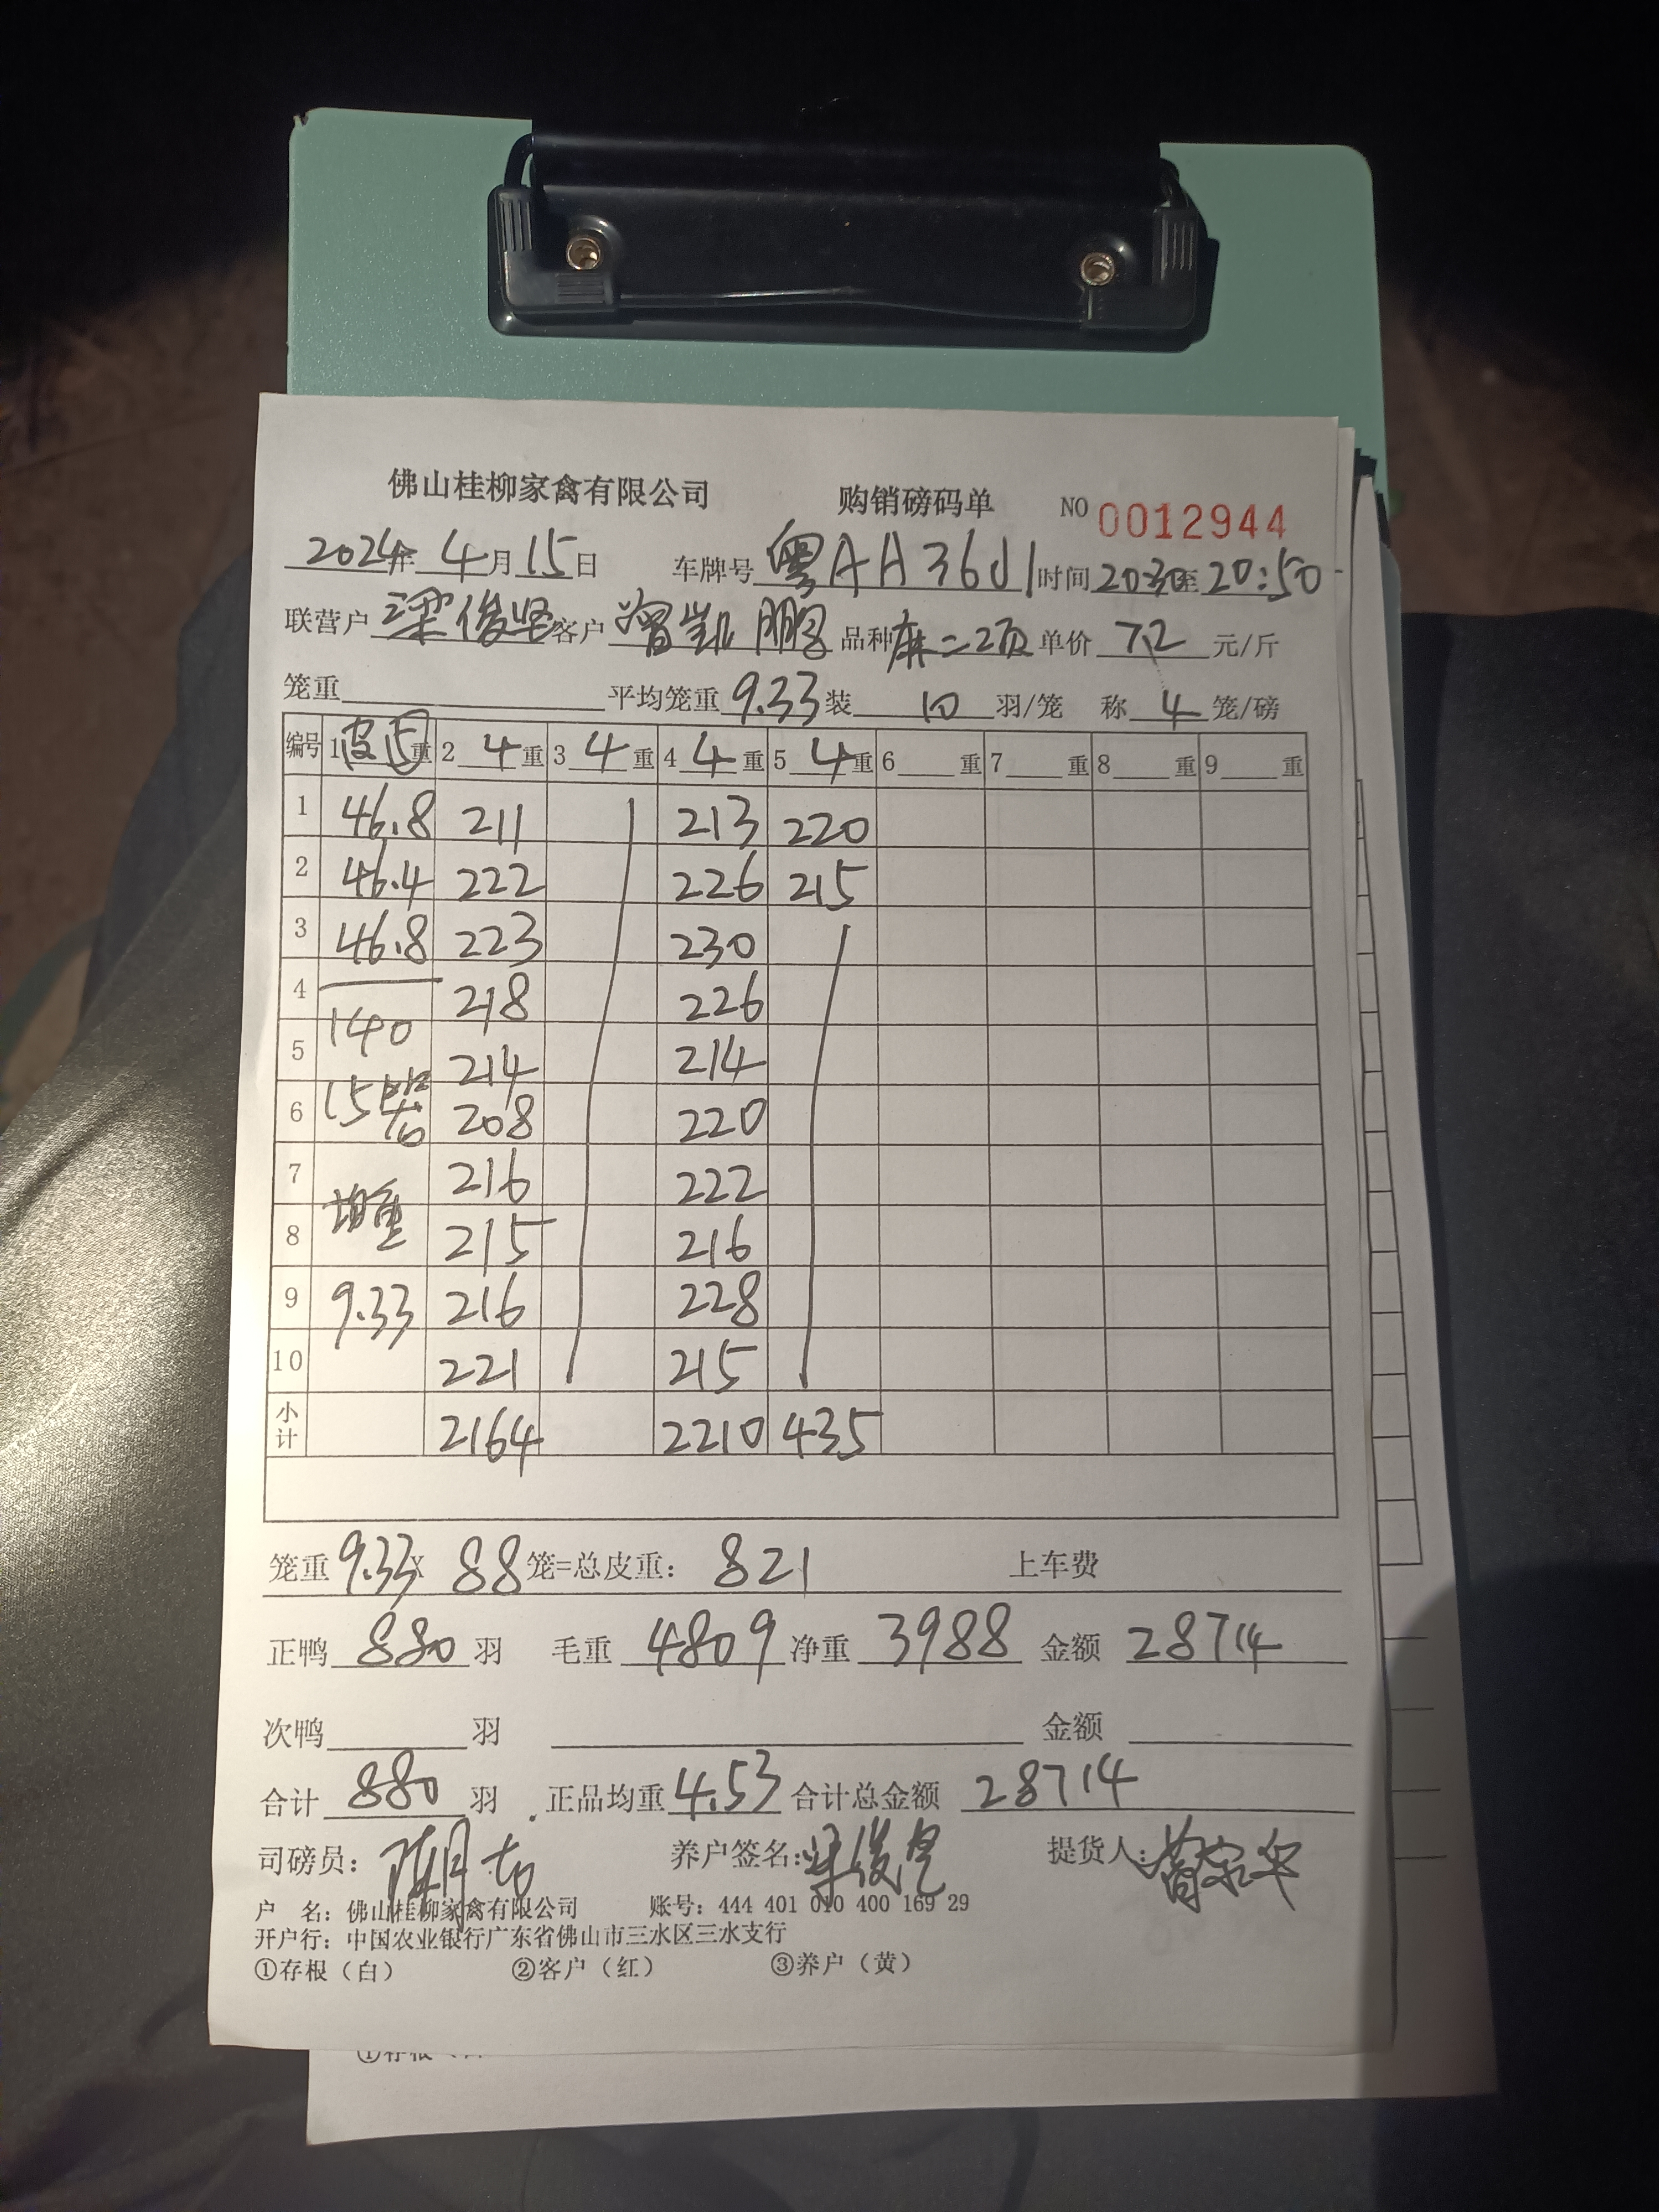 佛山桂柳家禽有限公司 购销磅码单 NO 0012944
2024年 4月15日 车牌号 粤AA36J1 时间 20:30至20:50
联营户 梁俊坚 客户 曾凯鹏 品种 麻二项 单价 7.2 元/斤
笼重 平均笼重 9.33 装 10 羽/笼 称 4 笼/磅
编号 1 皮5重 2 4 重 3 4 重 4 4 重 5 4 重 6 重 7 重 8 重 9 重
1 46.8 211 213 220
2 46.4 222 226 215
3 46.8 223 230
4 218 226
140
5 214 214
6 15笼 208 220
7 216 222
均重
8 215 216
9 9.33 216 228
10 221 215
小计 2164 2210 435
笼重 9.33 X 88 笼=总皮重: 821 上车费
正鸭 880 羽 毛重 4809 净重 3988 金额 28714
次鸭 羽 金额
合计 880 羽 正品均重 4.53 合计总金额 28714
司磅员: 养户签名: 提货人:
户 名: 佛山桂柳家禽有限公司 账号: 444 401 010 400 169 29
开户行: 中国农业银行广东省佛山市三水区三水支行
①存根（白） ②客户（红） ③养户（黄）